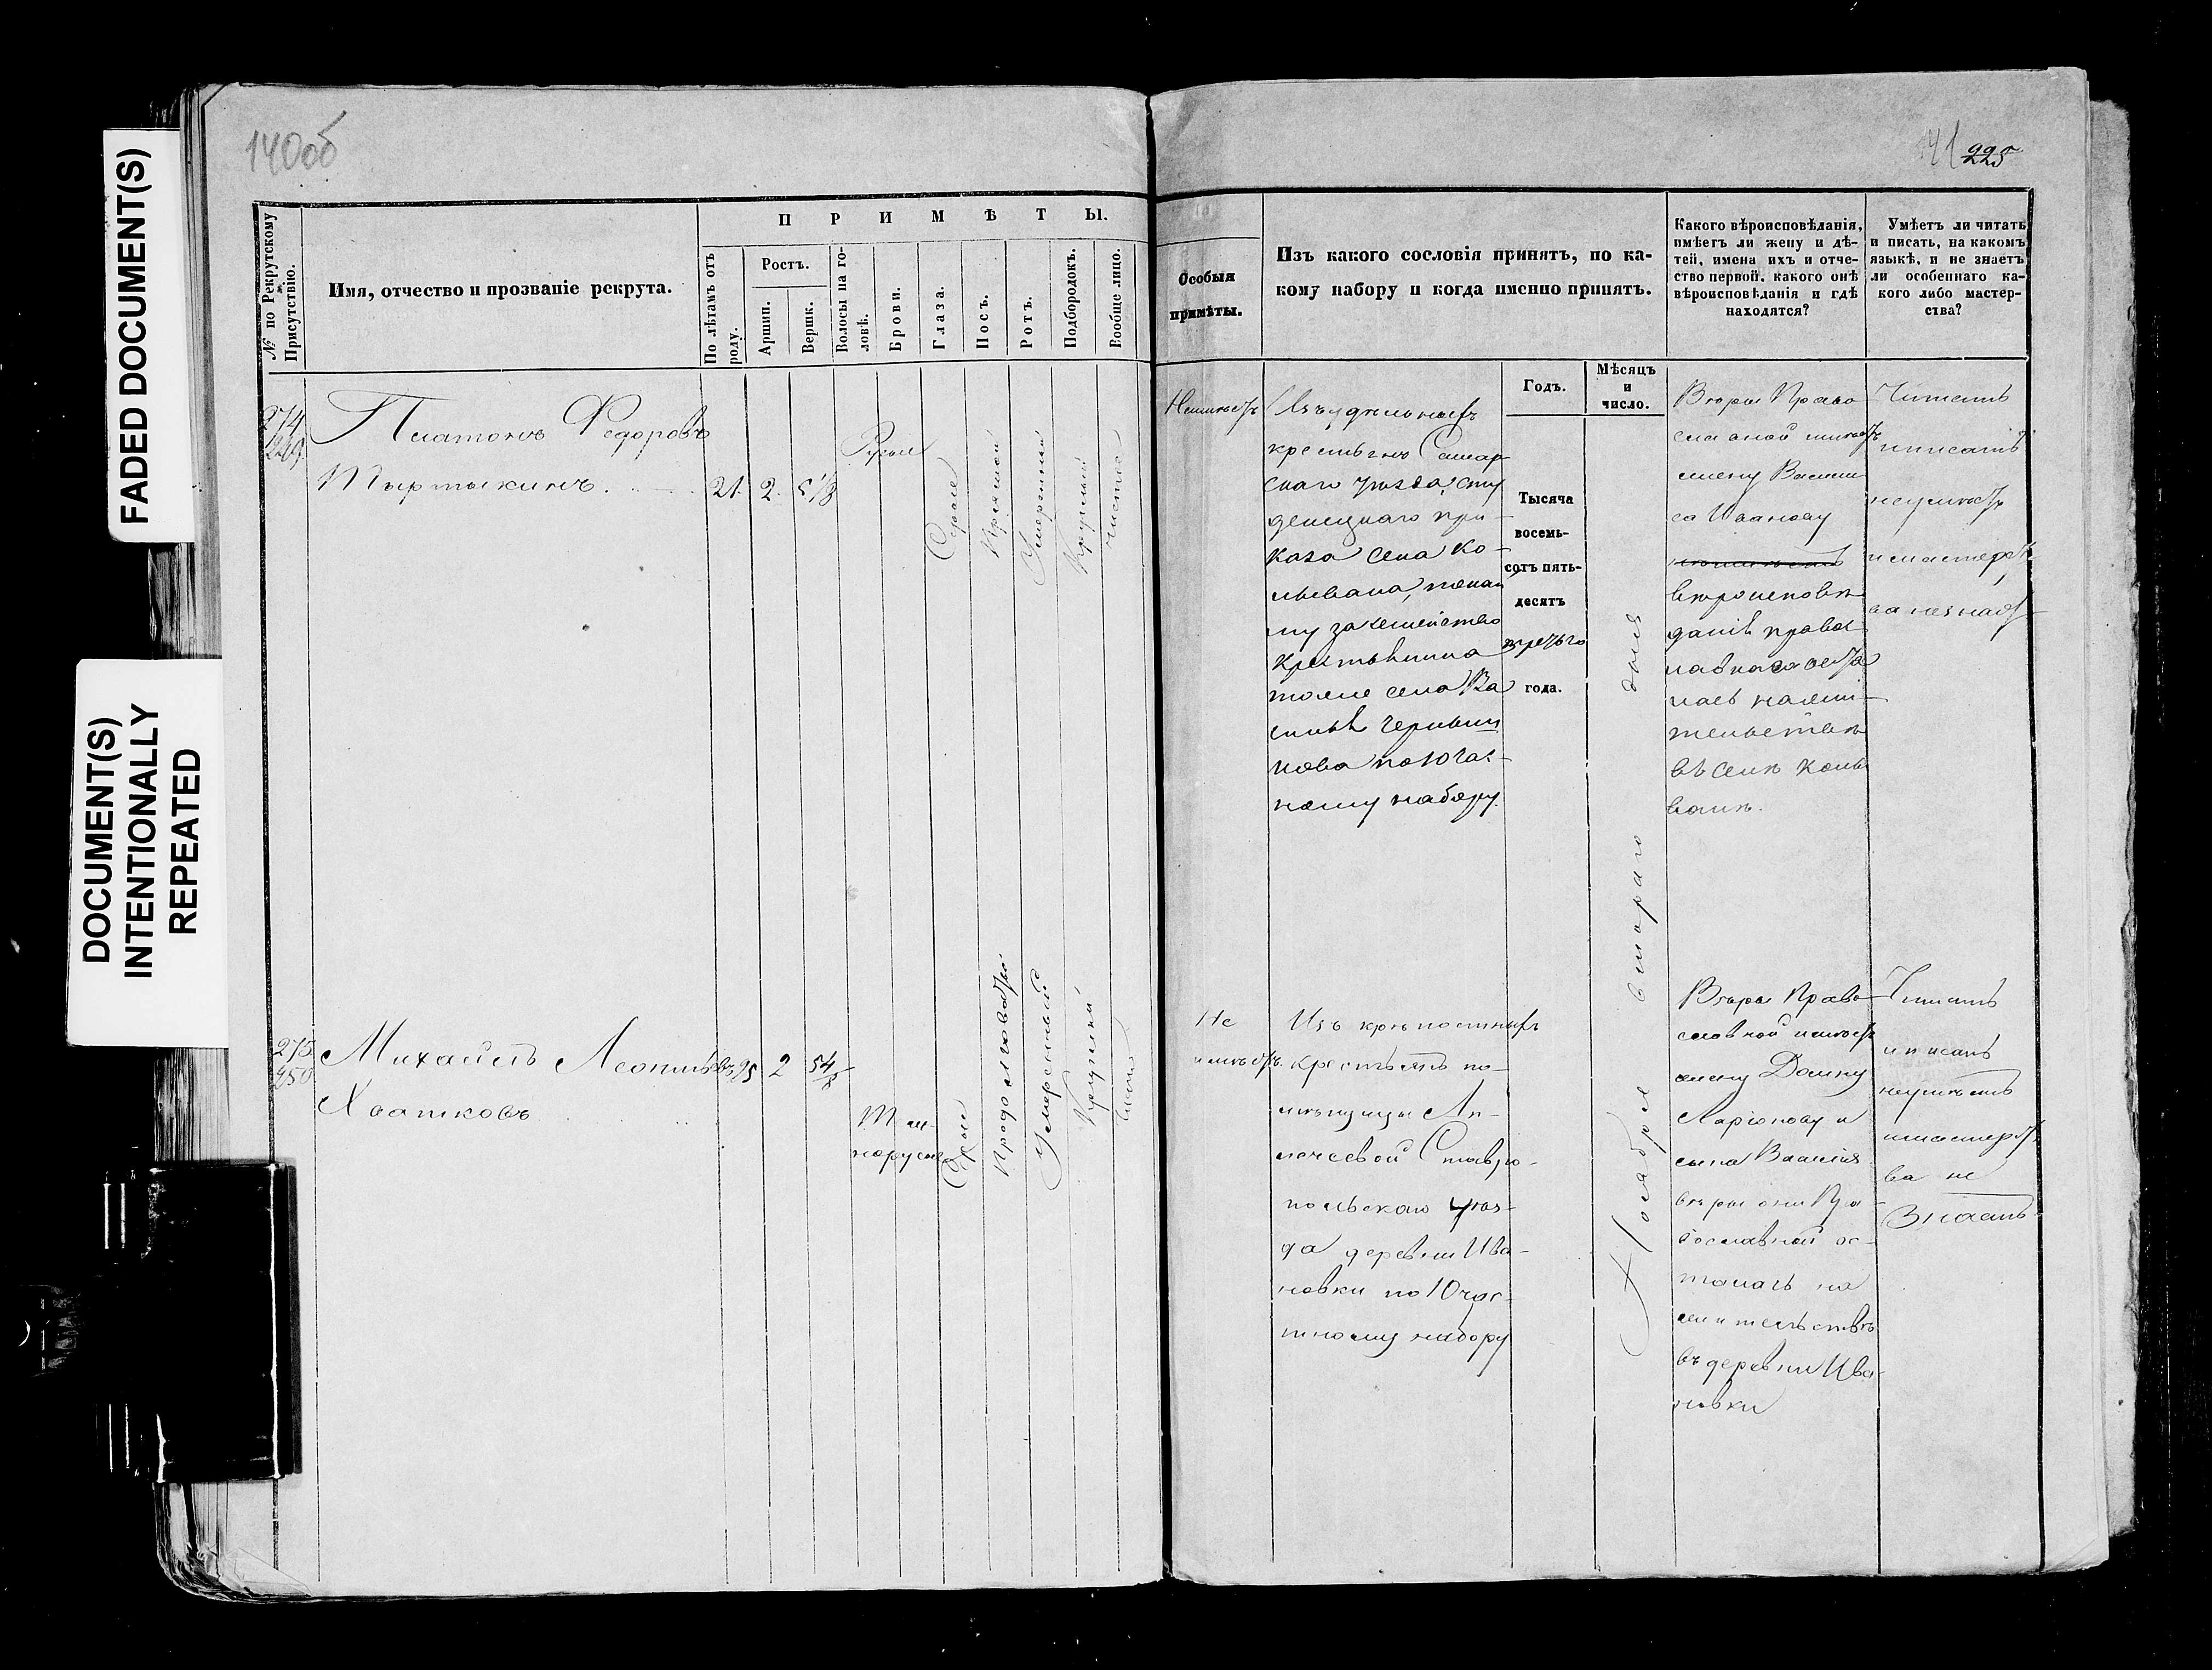 FADED DOCUMENT(S)
DOCUMENT(S)
INTENTIONALLY
REPEATED
140об
№ по Рекрутскому
Присутствію.
Имя, отчество и прозваніе рекрута.
ПРИМѢТЫ.
По лѣтамъ отъ
роду.
Ростъ.
Аршин.
Вершк.
Волосы на го-
ловѣ.
Брови.
Глаза.
Носъ.
Ротъ.
Подбородокъ.
Вообще лицо.
274
Платонъ Федоровъ
Тыртыкинъ.
21. 2. 5 1/8
Русые
Серые
Прямой
Умеренный
Круглый
чистое
275
250
Михаилъ Леонтьевъ 25 2 5 4/8
Хватковъ
Тем-
норусые
Серые
Продолговатый
Умеренный
Круглый
чистое
141 225
Особыя
примѣты.
Изъ какого сословія принятъ, по ка-
кому набору и когда именно принятъ.
Какого вѣроисповѣданія,
имѣетъ ли жену и дѣ-
тей, имена ихъ и отче-
ство первой, какого онѣ
вѣроисповѣданія и гдѣ
находятся?
Умѣетъ ли читать
и писать, на какомъ
языкѣ, и не знаетъ
ли особеннаго ка-
кого либо мастер-
ства?
Годъ.
Мѣсяцъ
и
число.
Неимѣетъ
Изъ удельныхъ
крестьянъ Самар
скаго уѣзда, сту
денецкаго при-
каза села Ко-
лывана,
му за семейство
Крестьянина
тоже села Ва
силья
нова по 10 час-
ному набору.
Тысяча
восемь-
сотъ пять-
десятъ
третьяго
года.
Ноября втораго дня
Вѣры Право
славной имѣетъ
жену Васили
су Иванову
вѣроисповѣ
данія правос
лавнаго оста
лась нажи-
тельствѣ
въ селѣ Колы
ванѣ.
Читать
иписать
неумѣетъ
имастерст
ва незнаетъ
Не
имѣетъ.
Изъ крѣпостныхъ
крестьянъ по-
мѣщицы
Ставро-
польскаго уѣз-
да деревни Ива-
новки по 10 час-
тному набору
Вѣры Право
славной имѣетъ
жену Домну
Ларіонову и
сына Василія
вѣры они Пра
вославной ос-
талась на
жительствѣ
въ деревни Ива-
новки
Читать
иписать
неумѣетъ
имастерст
ва не
знаетъ